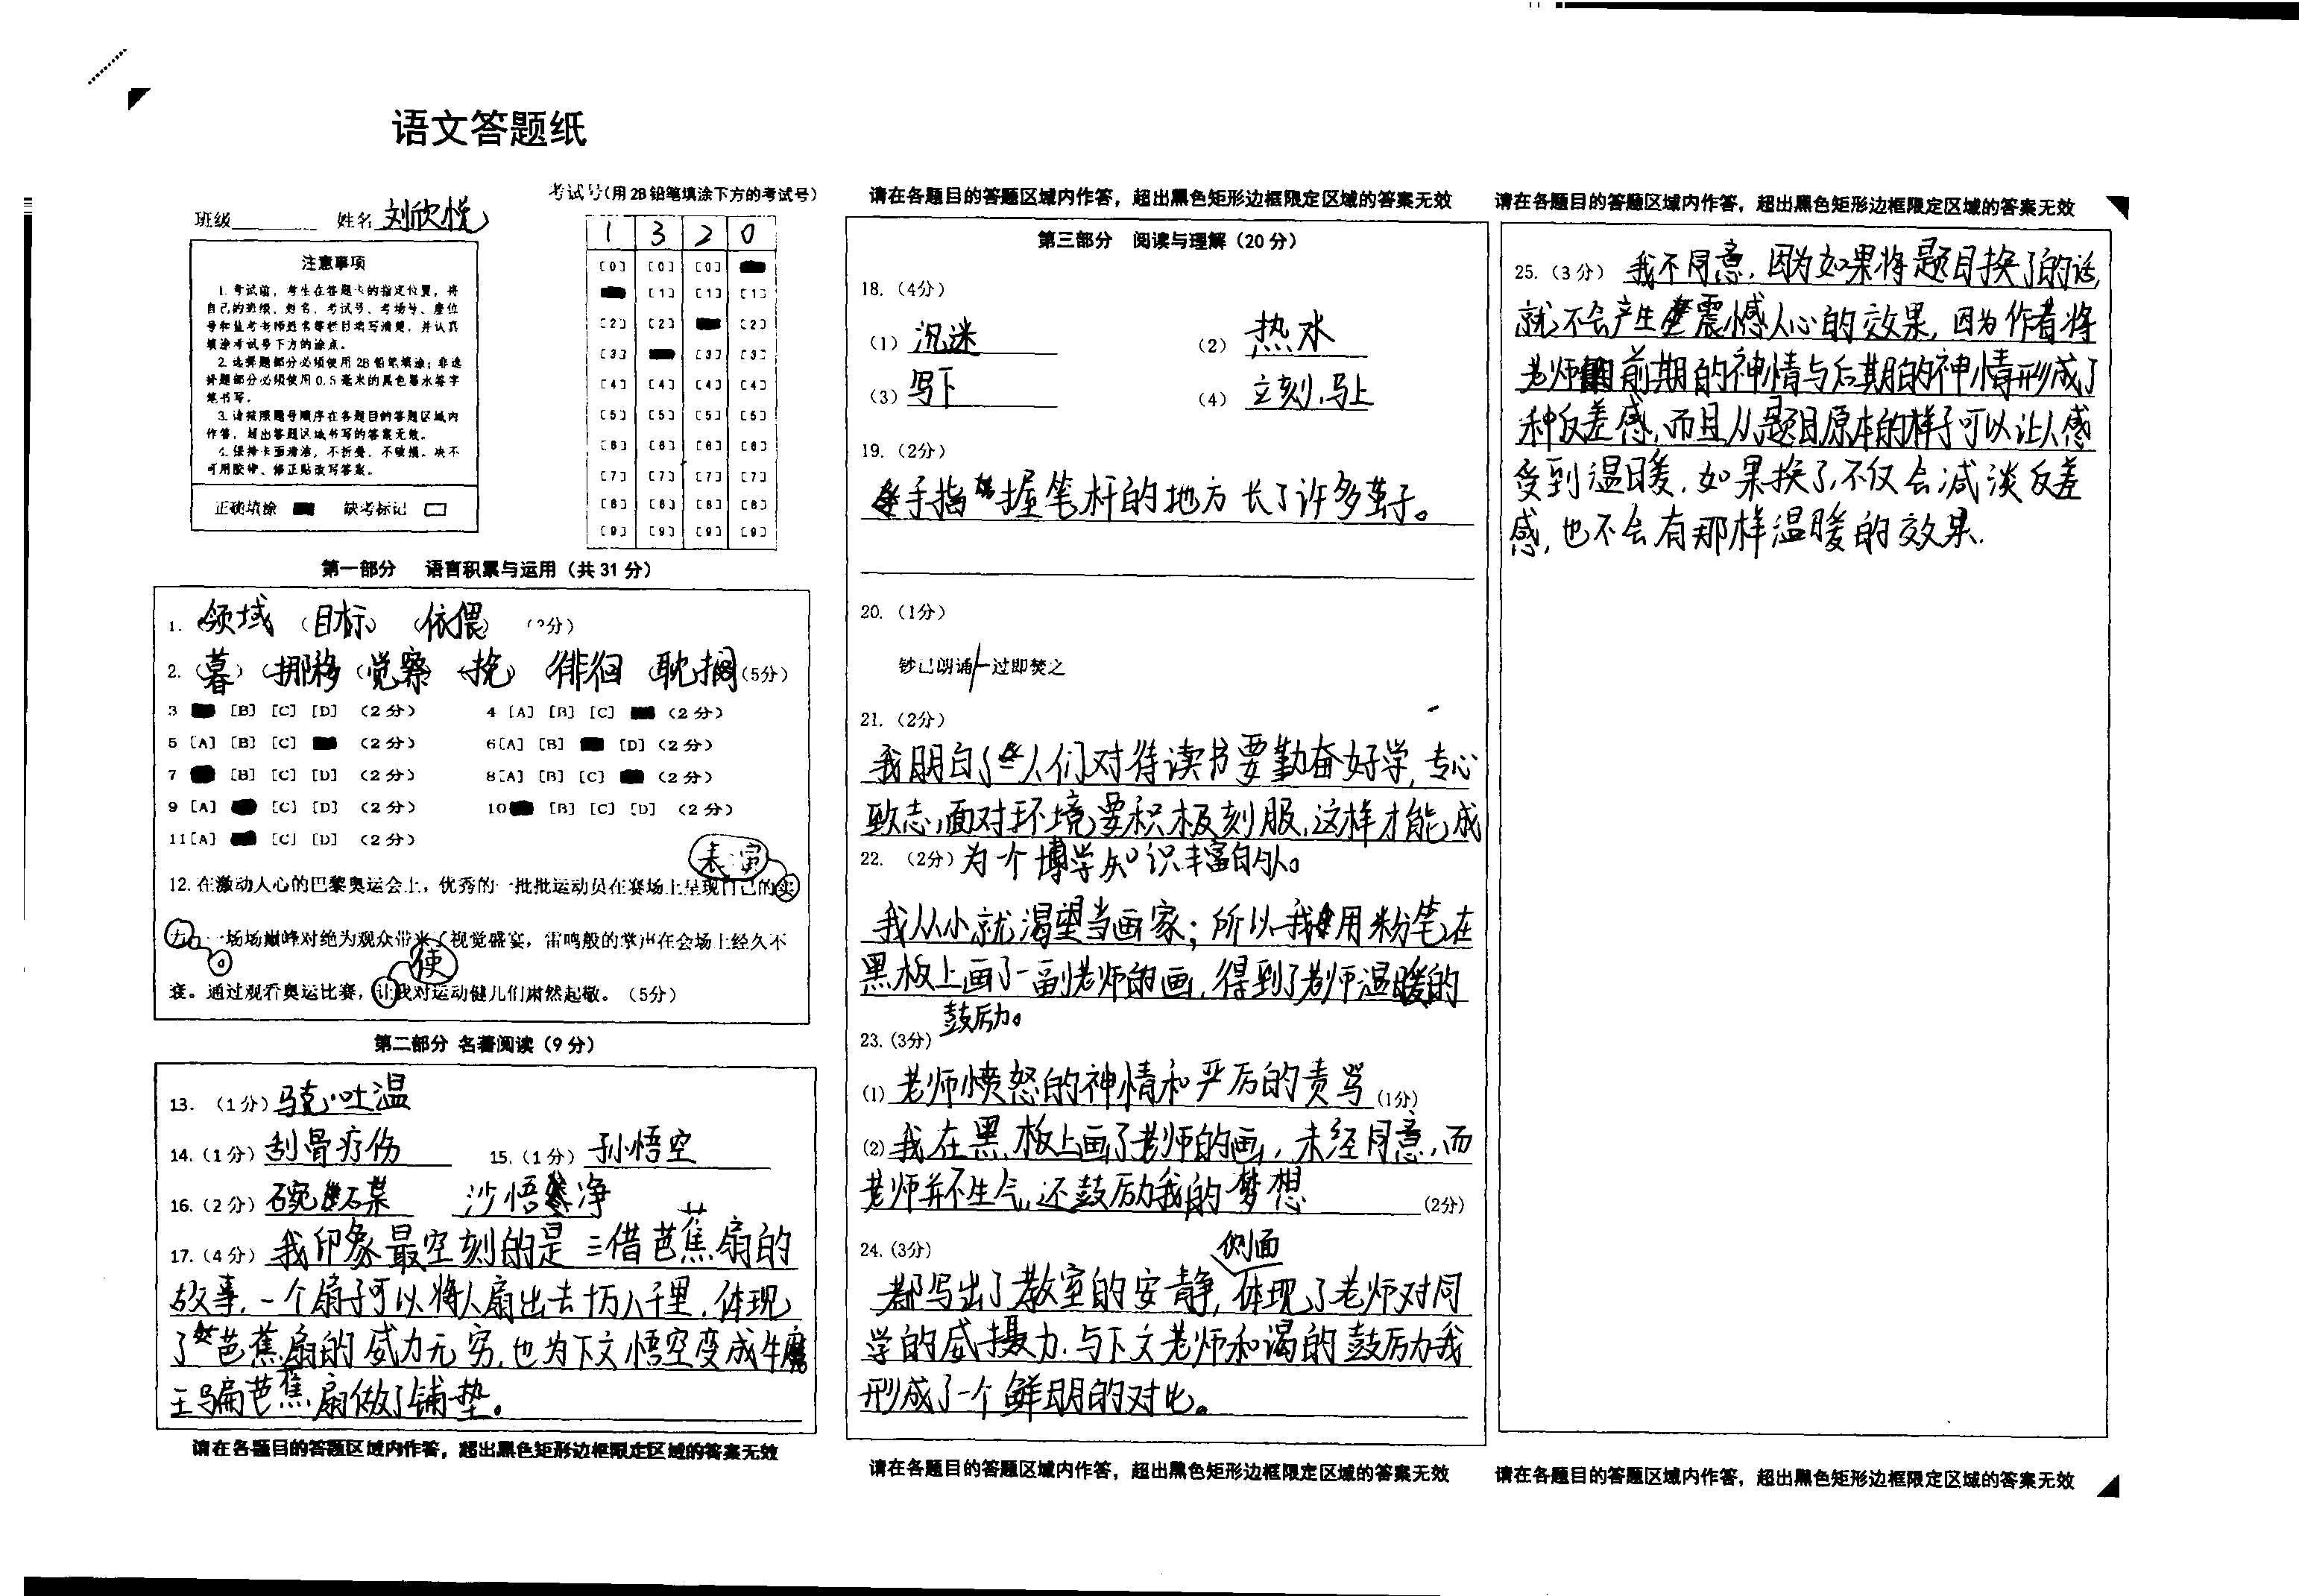 语文答题纸
班级 姓名 刘欣悦
考试号(用2B铅笔填涂下方的考试号)
1 3 2 0
[0] [0] [0]
[1] [1] [1]
[2] [2] [2]
[3] [3] [3]
[4] [4] [4] [4]
[5] [5] [5] [5]
[6] [6] [6] [6]
[7] [7] [7] [7]
[8] [8] [8] [8]
[9] [9] [9] [9]
注意事项
1.考试前,考生在答题卡的指定位置,将
自己的班级、姓名、考试号、考场号、座位
号和监考老师姓名等栏目填写清楚,并认真
填涂考试号下方的涂点。
2.选择题部分必须使用2B铅笔填涂;非选
择题部分必须使用0.5毫米的黑色墨水签字
笔书写。
3.请按照题号顺序在各题目的答题区域内
作答,超出答题区域书写的答案无效。
4.保持卡面清洁,不折叠、不破损。决不
可用胶带、修正贴改写答案。
正确填涂 缺考标记
第一部分 语言积累与运用(共31分)
1. 领域 (目标) (依偎) (2分)
2. (暮) (挪移 (觉察 (挽) (徘徊 (耽搁(5分)
3 [B] [C] [D] (2分) 4 [A] [B] [C] (2分)
5 [A] [B] [C] (2分) 6[A] [B] [D] (2分)
7 [B] [C] [D] (2分) 8[A] [B] [C] (2分)
9 [A] [C] [D] (2分) 10 [B] [C] [D] (2分)
11[A] [C] [D] (2分)
表演
12.在激动人心的巴黎奥运会上,优秀的一批批运动员在赛场上呈现自己的实
力。一场场巅峰对绝为观众带来了视觉盛宴,雷鸣般的掌声在会场上经久不
。
使
衰。通过观看奥运比赛,让我对运动健儿们肃然起敬。(5分)
第二部分 名著阅读(9分)
13. (1分)马克·吐温
14.(1分)刮骨疗伤 15.(1分)孙悟空
16.(2分) 沙悟净
17.(4分)我印象最空刻的是三借芭蕉扇的
故事,一个扇子可以将人扇出去十万八千里,体现
了芭蕉扇的威力无穷,也为下文悟空变成牛魔
王骗芭蕉扇做了铺垫。
请在各题目的答题区域内作答,超出黑色矩形边框限定区域的答案无效
请在各题目的答题区域内作答,超出黑色矩形边框限定区域的答案无效
第三部分 阅读与理解(20分)
18.(4分)
(1) 沉迷 (2) 热水
(3) 写下 (4) 立刻,马上
19.(2分)
手指握笔杆的地方长了许多茧子。
20.(1分)
钞已朗诵/一过即焚之
21.(2分)
我明白了人们对待读书要勤奋好学,专心
致志,面对环境要积极刻服,这样才能成
22. (2分)为个博学知识丰富的人。
我从小就渴望当画家;所以我用粉笔在
黑板上画了一副老师的画,得到了老师温暖的
鼓励。
23.(3分)
(1)老师愤怒的神情和严厉的责骂(1分)
(2)我在黑板上画了老师的画,未经同意,而
老师并不生气,还鼓励我的梦想 (2分)
24.(3分) 侧面
都写出了教室的安静,体现了老师对同
学的威摄力.与下文老师和渴的鼓励我
形成了一个鲜明的对比。
请在各题目的答题区域内作答,超出黑色矩形边框限定区域的答案无效
请在各题目的答题区域内作答,超出黑色矩形边框限定区域的答案无效
25.(3分) 我不同意.因为如果将题目换了的话,
就不会产生震憾人心的效果,因为作者将
老师前期的神情与后期的神情形成了
种反差感,而且从题目原本的样子可以让人感
受到温暖,如果换了,不仅会减淡反差
感,也不会有那样温暖的效果.
请在各题目的答题区域内作答,超出黑色矩形边框限定区域的答案无效